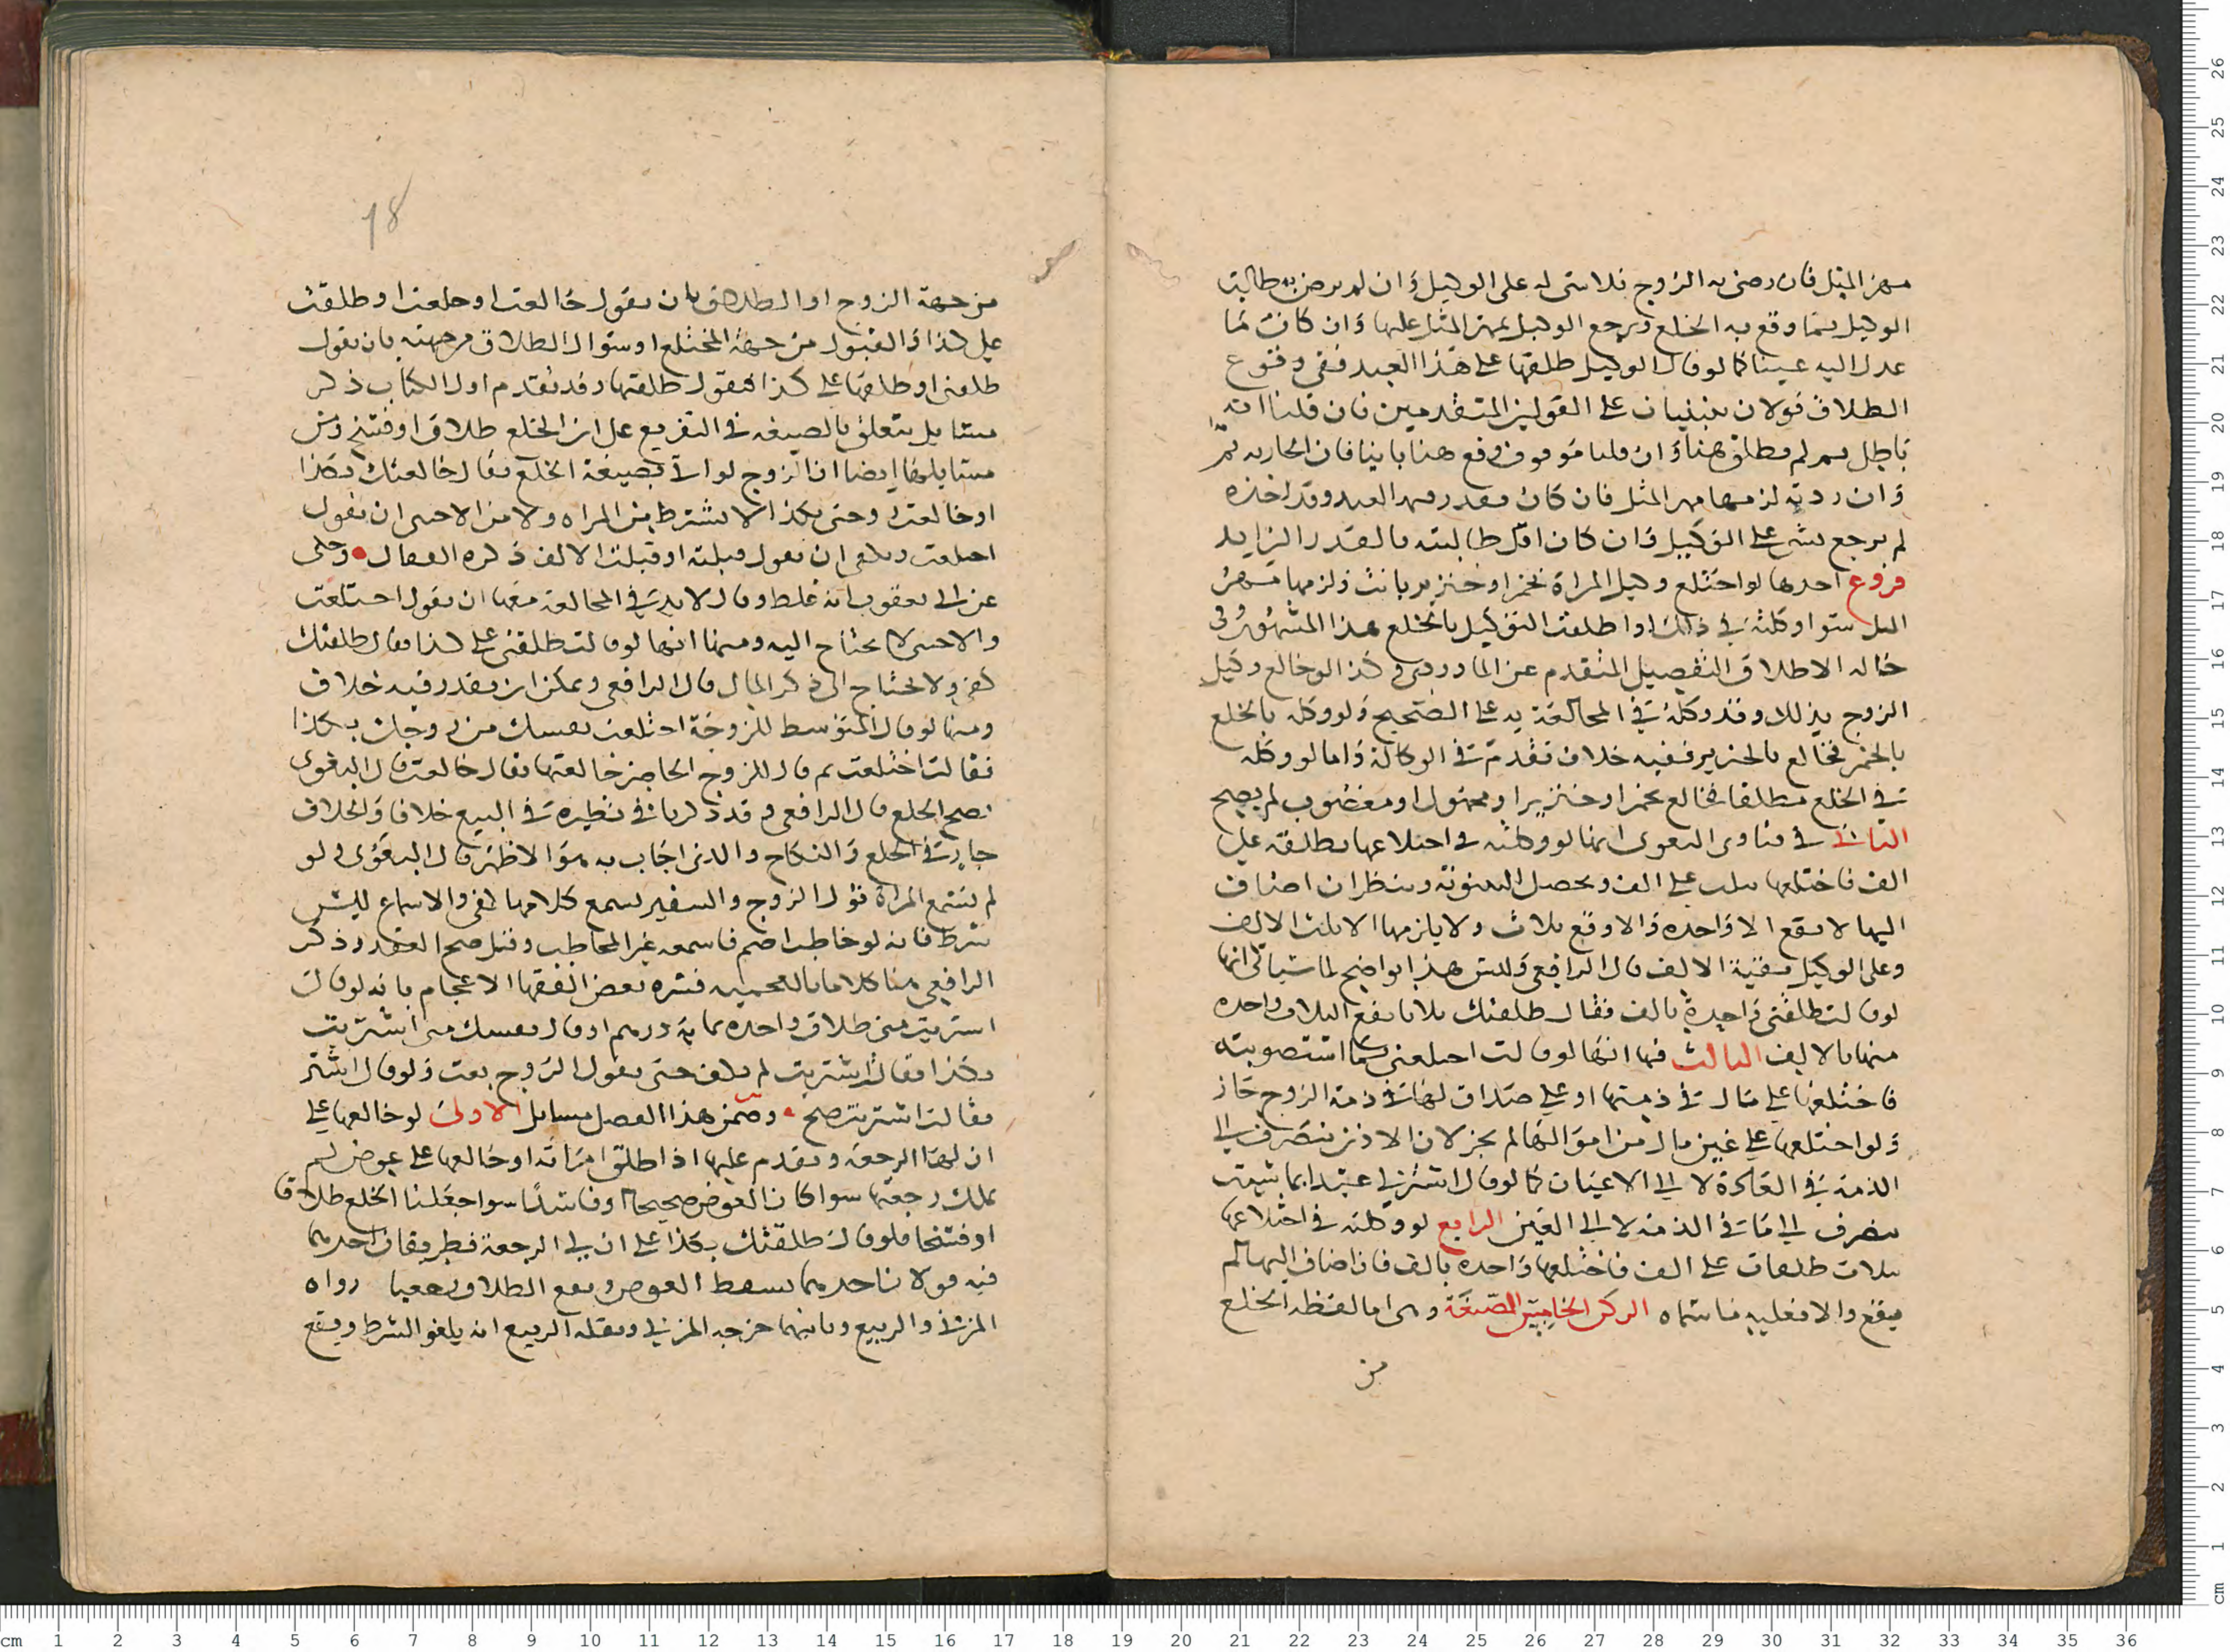 مهر المثل فان رضى به الزوج فلا شى له على الوكيل وان لم يرض به طالبت
الوكيل بما وقع به الخلع ويرجع الوكيل بمهر المثل عليها وان كانت ما
عدل اليه عينا كما لو قال الوكيل طلقها على هذا العبد ففى وقوع
الطلاق قولان مبنيان على القولين المتقدمين فان قلنا انه
باطل لم تطلق هنا وان قلنا موقوف وقع هنا باينا فان اجازته تم
وان ردته لزمها مهر المثل فان كان بقدر مهر العبد وقد اخذه
لم يرجع بشى على الوكيل وان كان اقل طالبته بالقدر الزايد
فروع احدها لو اختلع وكيل المراة بخمر او خنزير بانت ولزمها مهر
المثل سوا وكلته فى ذلك او اطلقت التوكيل بالخلع هذا المشهور وفى
حاله الاطلاق التفصيل المتقدم عن الماوردى وكذا لو خالع وكيل
الزوج بذلك وقد وكله فى المخالعة به على الصحيح ولو وكله بالخلع
بالخمر فخالع بالخنزير ففيه خلاف تقدم فى الوكالة واما لو وكله
فى الخلع مطلقا فخالع بخمر او خنزير او مجهول او مغصوب لم يصح
الثانى فى فتاوى البغوى انها لو وكلته فى اختلاعها بطلقه على
الف فاختلعها بثلث على الف وتحصل البينونة وينظر ان اضاف
اليها لا يقع الا واحده والا وقع ثلاث ولا يلزمها الا ثلث الالف
وعلى الوكيل بقية الالف قال الرافعى وليس هذا بواضح لما سياتى انها
لو قالت طلقنى واحدة بالف فقال طلقتك ثلاثا يقع الثلاث واحده
منها بالالف الثالث فيها انها لو قالت اختلعنى بما استصوبته
فاختلعها على مال فى ذمتها او على صداق لها فى ذمة الزوج جاز
ولو اختلعها على عين مال من اموالها لم يجز لان الاذن ينصرف الى
الذمة فى العادة لا الى الاعيان كما لو قال اشتر لى عبدا بما شيت
ينصرف الى ما فى الذمة لا الى العين الرابع لو وكلته فى اختلاعها
بثلاث طلقات على الف فاختلعها واحده بالف فان اضاف اليها لم
يقع والا فعليه ما سماه الركن الخامس الصيغة وهى اما لفظه الخلع
من
18
من جهة الزوج او الطلاق بان يقول خالعت او خلعت او طلقت
على كذا والقبول من جهة المختلع او سوال الطلاق من جهته بان يقول
طلقنى او طلقها على كذا فيقول طلقتها وقد تقدم اول الكتاب ذكر
مسايل يتعلق بالصيغه فى التفريع على ان الخلع طلاق او فسخ ومن
مسايلها ايضا ان الزوج لو اتى بصيغة الخلع فقال خالعتك بكذا
او خالعت وحتى بكذا لا يشترط من المراه ولا من الاجنبى ان يقول
اختلعت ويكفى ان يقول قبلته او قبلت الالف ذكره القفال وحكى
عن ابى يعقوب انه غلط وقال لابد فى المخالعة معها ان يقول اختلعت
والاجنبى لا يحتاج اليه ومنها انها لو قالت طلقنى على كذا فقال طلقتك
كفى ولا يحتاج الى ذكر المال قال الرافعى ويمكن ان يقدر فيه خلاف
ومنها لو قال المتوسط للزوجة اختلعت نفسك من زوجك بكذا
فقالت اختلعت ثم قال للزوج الحاضر خالعتها فقال خالعت قال البغوى
يصح الخلع قال الرافعى وقد ذكرنا فى نظيره فى البيع خلافا والخلاف
جار فى الخلع والنكاح والذى اجاب به هو الاظهر قال البغوى ولو
لم يسمع المراة قول الزوج والسفير يسمع كلامها كفى والاسماع ليس
شرط فانه لو خاطب اصم فاسمعه غير المخاطب وقبل صح العقد وذكر
الرافعى هنا كلاما بالعجميه فسره بعض الفقها الاعجام بانه لو قالت
اشتريت منى طلاق واحده بماية درهم او قال نفسك منى اشتريت
بكذا فقالت اشتريت لم يكف حتى يقول الزوج بعت ولو قال اشتر
فقالت اشتريت صح وضمن هذا الفصل مسايل الاولى لو خالعها على
ان لها الرجعة وتقدم عليها اذا طلق امراته او خالعها على عوض لم
يملك رجعتها سوا كان العوض صحيحا او فاسدا سوا جعلنا الخلع طلاقا
او فسخا فلو قال طلقتك بكذا على ان لى الرجعة فطريقان احدهما
فيه قولان احدهما يسقط العوض ويقع الطلاق رجعيا رواه
المزنى والربيع وثانيهما خرجه المزنى ونقله الربيع انه يلغو الشرط ويقع